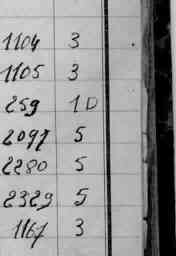 1104 3
1105 3
259 1D
2097 5
2280 5
2329 5
1167 3